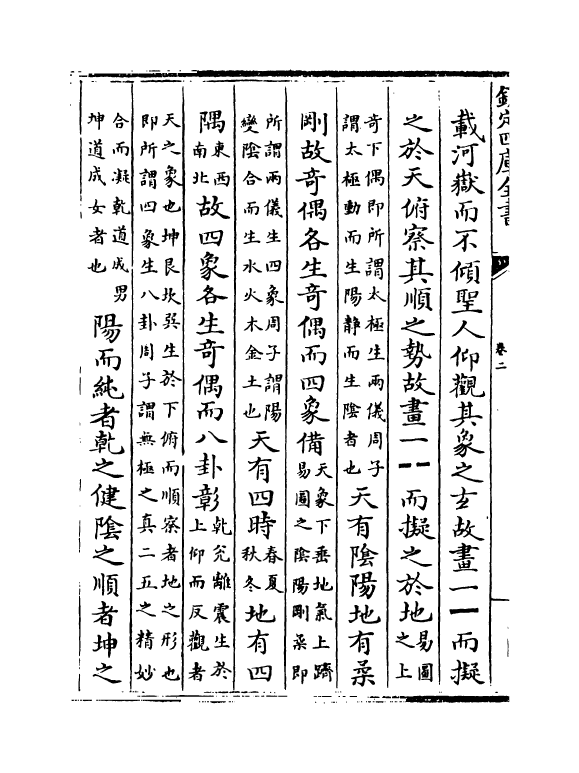 欽定四庫全書
卷二
載河嶽而不傾聖人仰觀其象之玄故畫⚊⚋而擬
之於天俯察其順之勢故畫⚊⚋而擬之於地易圖之上
奇下偶即所謂太極生兩儀周子謂太極動而生陽静而生陰者也天有陰陽地有柔
剛故奇偶各生奇偶而四象備天象下垂地氣上躋易圖之陰陽剛柔即
所謂兩儀生四象周子謂陽變陰合而生水火木金土也天有四時春夏秋冬地有四
隅東西南北故四象各生奇偶而八卦彰乾兊離震生於上仰而反觀者
天之象也坤艮坎巽生於下俯而順察者地之形也即所謂四象生八卦周子謂無極之真二五之精妙
合而凝乾道成男坤道成女者也陽而純者乾之健陰之順者坤之